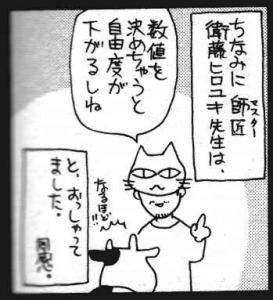 ちなみに師匠
マスター
衛藤ヒロユキ先生は、
数値を
決めちゃうと
自由度が
下がるしね
なるほど!!
と、おっしゃって
ました。
同感。